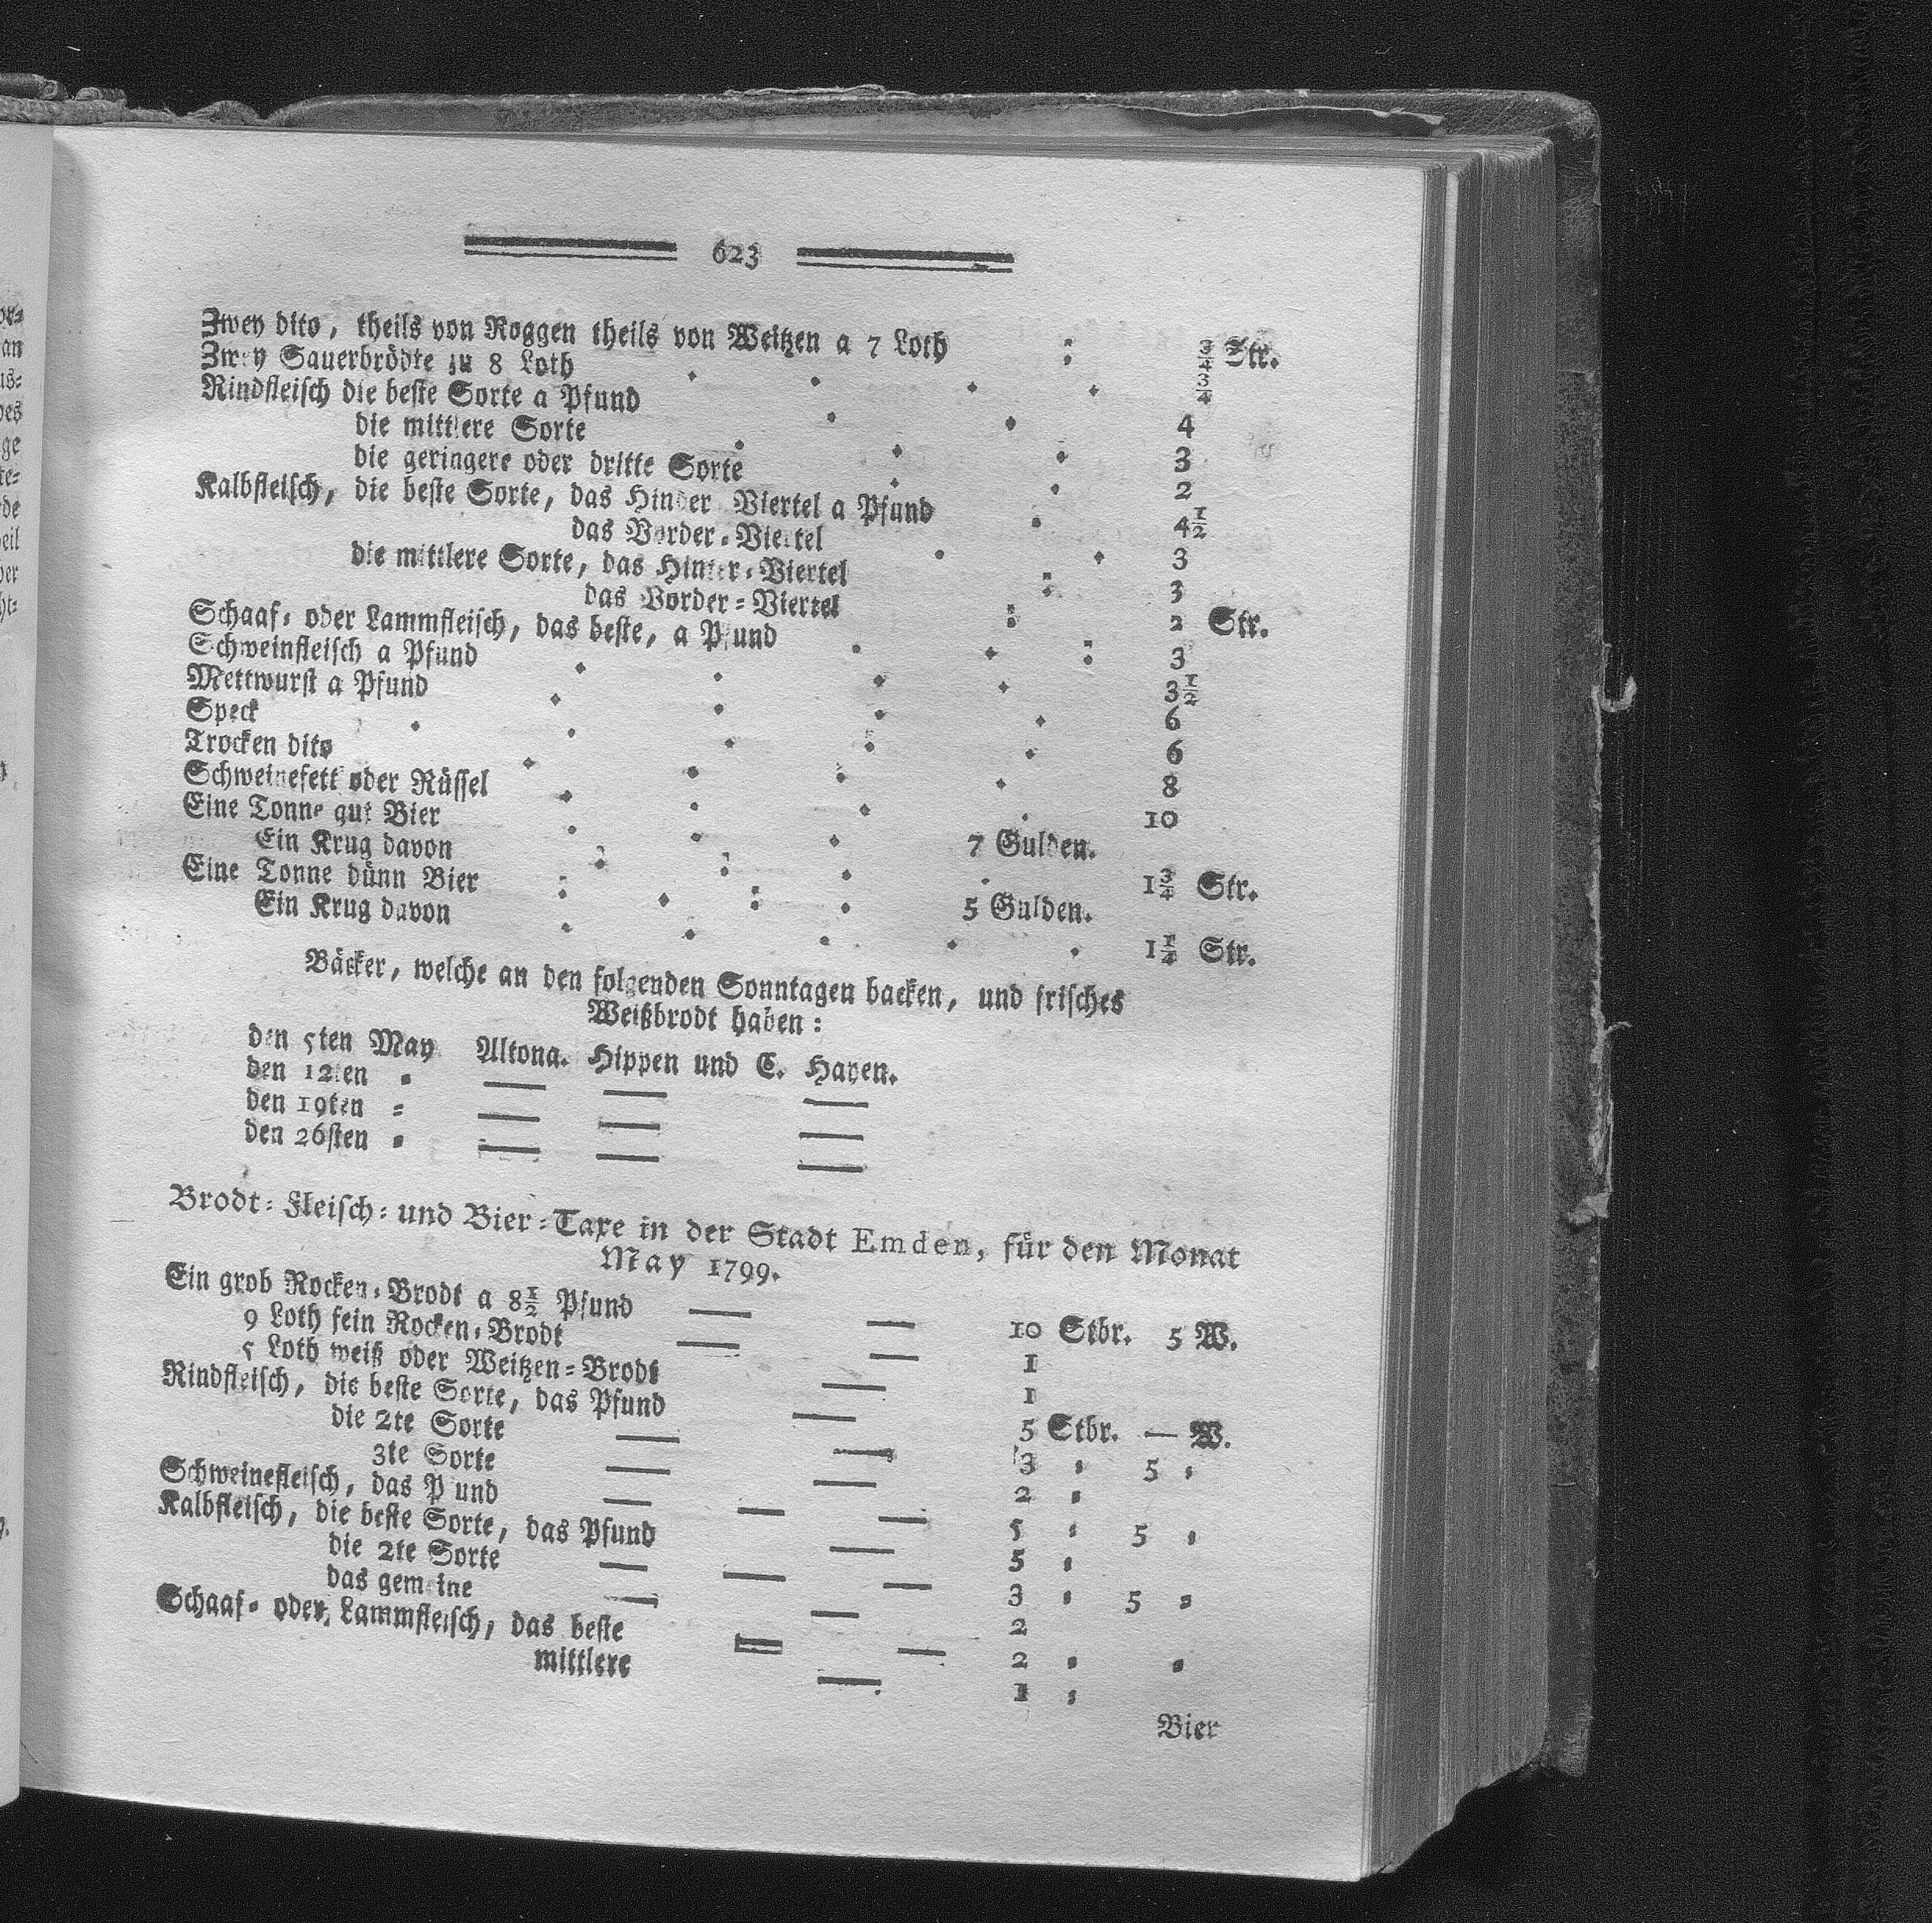 623
Zwey dito, theils von Roggen theils von Weitzen a 7 Loth : ¾ Str.
Zwey Sauerbrödte zu 8 Loth ¾
Rindfleisch die beste Sorte a Pfund 4
die mittlere Sorte 3
die geringere oder dritte Sorte 2
Kalbfleisch, die beste Sorte, das Hinder Viertel a Pfund 4½
das Vorder-Viertel 3
die mittlere Sorte, das Hinter-Viertel : 3
das Vorder-Viertel : 2 Str.
Schaaf- oder Lammfleisch, das beste, a Pfund : 3
Schweinfleisch a Pfund 3½
Mettwurst a Pfund 6
Speck 6
Trocken dito 8
Schweinefett oder Rüssel 10
Eine Tonne gut Bier 7 Gulden.
Ein Krug davon 1¾ Str.
Eine Tonne dünn Bier 5 Gulden.
Ein Krug davon 1¼ Str.
Bäcker, welche an den folgenden Sonntagen backen, und frisches
Weißbrodt haben:
den 5ten May Altona. Hippen und C. Hayen.
den 12ten = — — —
den 19ten = — — —
den 26sten = — — —
Brodt-Fleisch- und Bier-Taxe in der Stadt Emden, für den Monat
May 1799.
Ein grob Rocken-Brodt a 8½ Pfund — — 10 Stbr. 5 W.
9 Loth fein Rocken-Brodt — — 1
5 Loth weiß oder Weitzen-Brodt — 1
Rindfleisch, die beste Sorte, das Pfund — 5 Stbr. — W.
die 2te Sorte — — 3 = 5 =
3te Sorte — — 2 =
Schweinefleisch, das Pfund — — — 5 = 5 =
Kalbfleisch, die beste Sorte, das Pfund — 5 =
die 2te Sorte — — — 3 = 5 =
das gemeine — — 2
Schaaf- oder Lammfleisch, das beste — — 2 = =
mittlere — 1 =
Bier